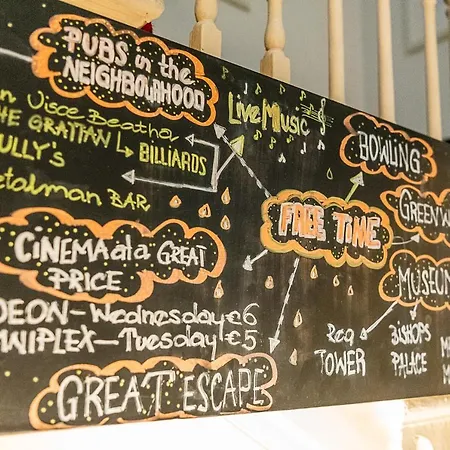 PUBS in the
NEIGHBOURHOOD
Uisce Beatha
THE GRATTAN
BILLIARDS
ULLY'S
etalman BAR
Live Music
BOWLING
FREE TIME
GREENW
CINEMA at a GREAT
PRICE
DEON-Wednesday €6
MNIPLEX-Tuesday €5
MUSEUM
Reg
TOWER
BISHOPS
PALACE
GREAT ESCAPE